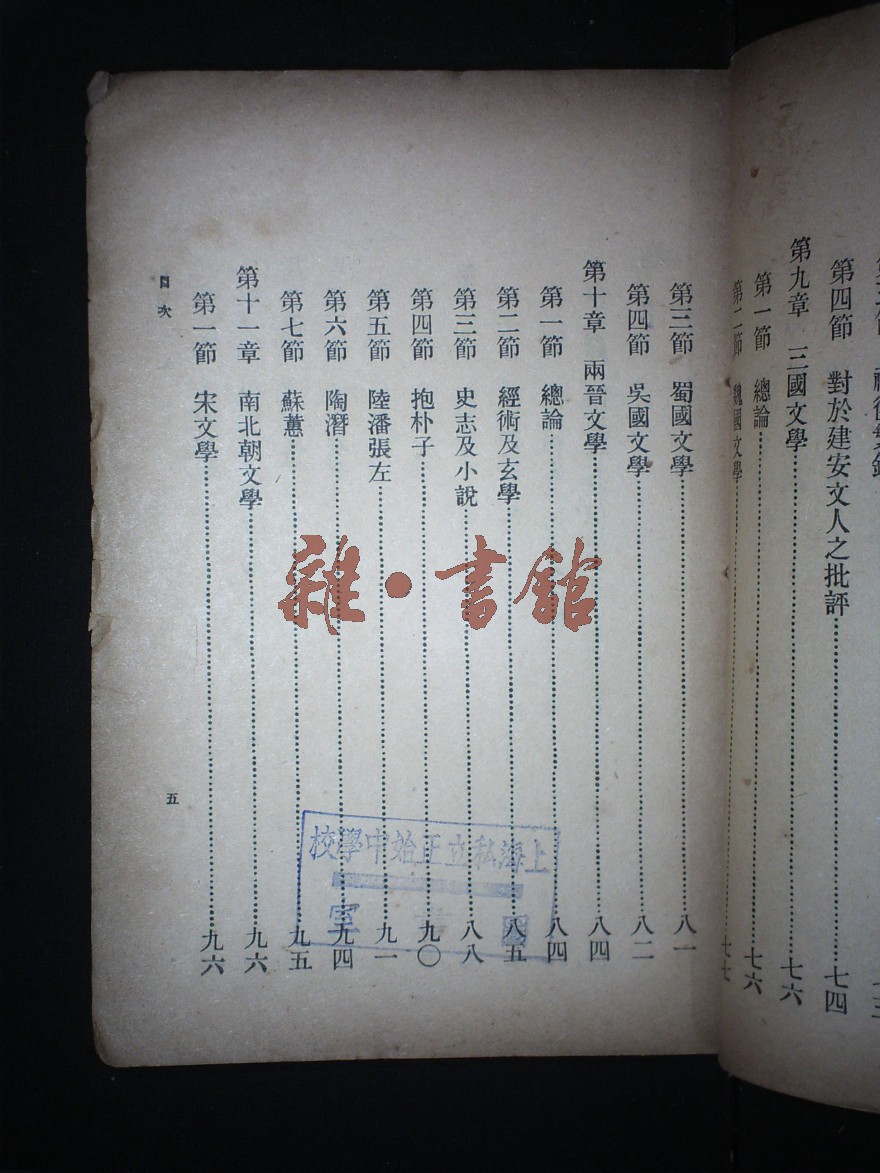 第四節　對於建安文人之批評……七四
第九章　三國文學……七六
第一節　總論……七六
第二節　魏國文學……七七
第三節　蜀國文學……八一
第四節　吳國文學……八二
第十章　兩晉文學……八四
第一節　總論……八四
第二節　經術及玄學……八五
第三節　史志及小說……八八
第四節　抱朴子……九〇
第五節　陸潘張左……九一
第六節　陶潛……九四
第七節　蘇蕙……九五
第十一章　南北朝文學……九六
第一節　宋文學……九六
目次
五
雜·書館
上海私立正始中學校
圖書室